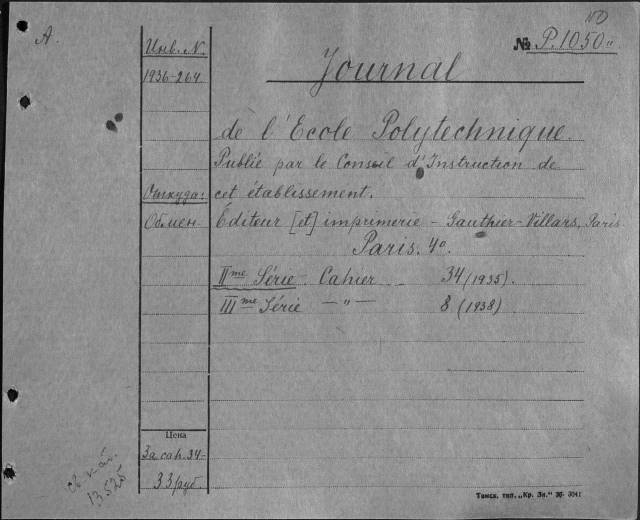 А.
Инв. N.
1936-264
№ P. 1050
Journal
de l'Ecole Polytechnique.
Publié par le Conseil d'Instruction de
Откуда: cet établissement.
Обмен Éditeur [et] imprimerie - Gauthier-Villars, Paris
Paris. 4o.
IIme Série. Cahier 34 (1935).
IIIme Série — " — 8 (1938)
Цена
За cah. 34-
33 руб.
13.525
Томск, тип. „Кр. Зн." 36- 3041